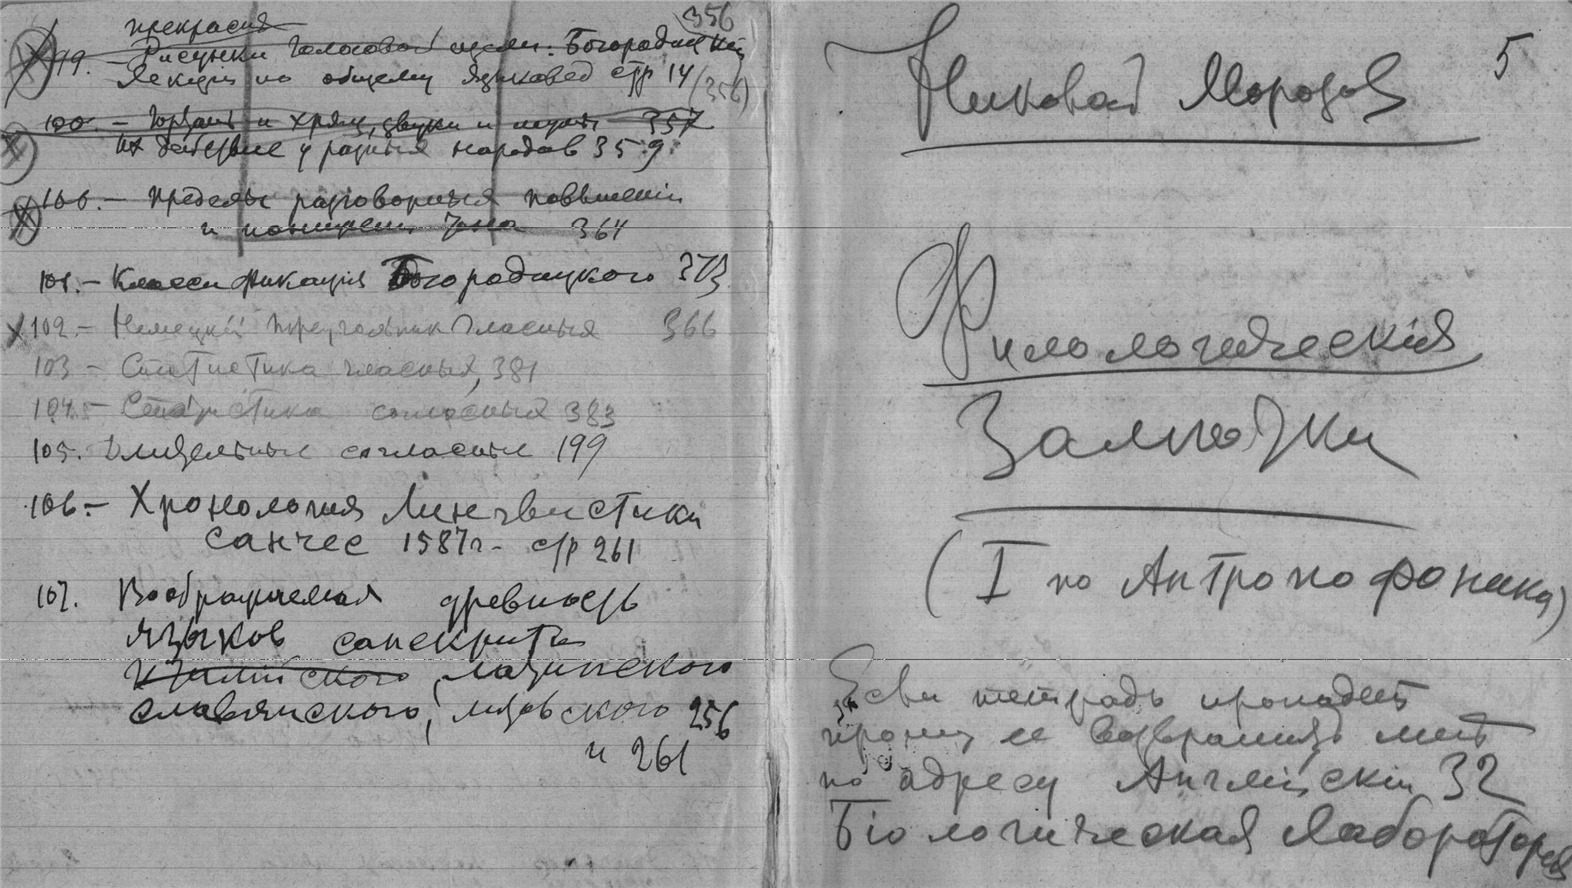 356
прекрасия
99. – Рисунки голосовой щели. Богородицкий
Лекции по общему языковед стр 14 (356)
100. – Гортань и хрящ, звуки и 357
их действие у разных народов 359
100. – Пределы разговорных повышений
и понижений тона 364
101. – Классификация Богородицкого 373
102 – Немецкий треугольник гласных 366
103 – Статистика гласных, 381
104 – Статистика согласных 383
105. Длительные согласные 199
106. – Хронология Лингвистики
Санчес 1587 г. – стр 261
107. Воображаемая древность
языков санскрита
латинского
славянского, литовского 256
и 261
5
Николай Морозов
Филологическия
Заметки
(I по Антропофонике)
Если тетрадь пропадет
прошу ее возвратить мне
по адресу Английский 32
Биологическая Лаборатория